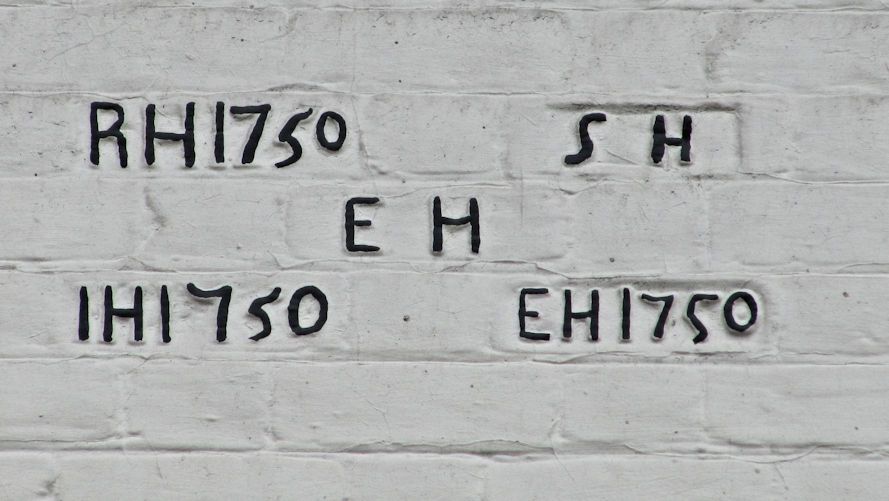 RH1750 S H
E H
IH1750 EH1750